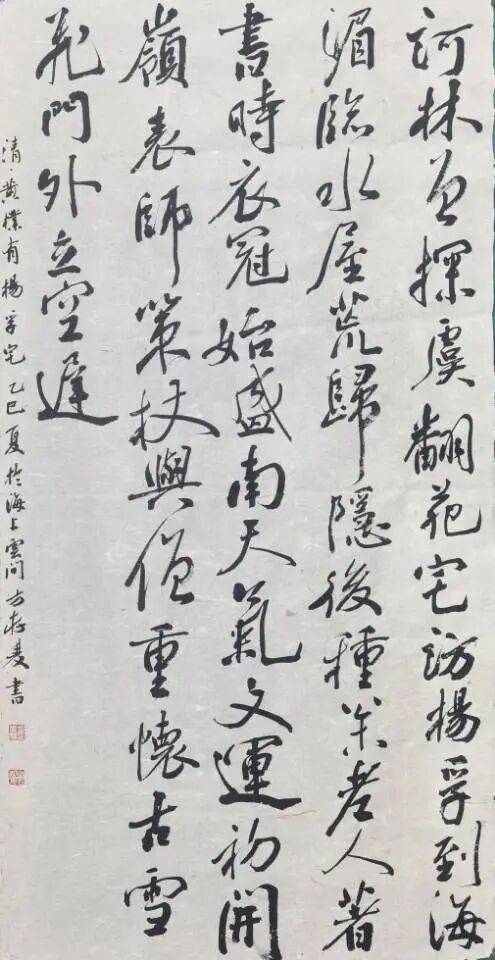 訶林曾探虞翻苑宅訪楊孚到海
湄臨水屋荒歸隱後種老人著
書時衣冠始盛南天氣文運初開
嶺表師策杖與僧重懷古雪
花門外立空遲
清·黄樸有楊孚宅 乙巳夏於海上雲间方存書